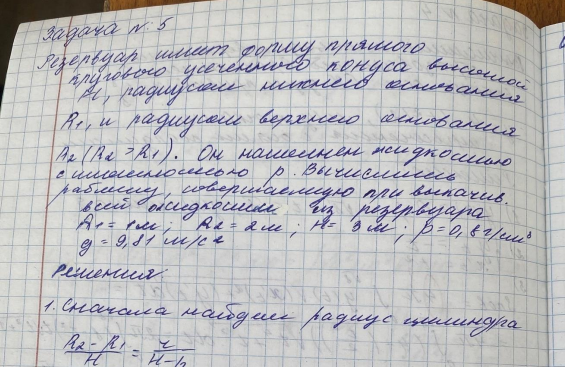 Задача №: 5
Резервуар имеет форму прямого
кругового усеченного конуса высотой
H, радиусом нижнего основания
R1, и радиусом верхнего основания
R2 (R2 > R1). Он наполнен жидкостью
с плотностью ρ. Вычислить
работу, совершаемую при выкачив.
всей жидкости из резервуара
R1 = 1м, R2 = 2м; H = 3м; ρ = 0,8 г/см³
g = 9,81 м/с2
Решения
1. Сначала найдем радиус цилиндра
R2 - R1 / H = r / H-h